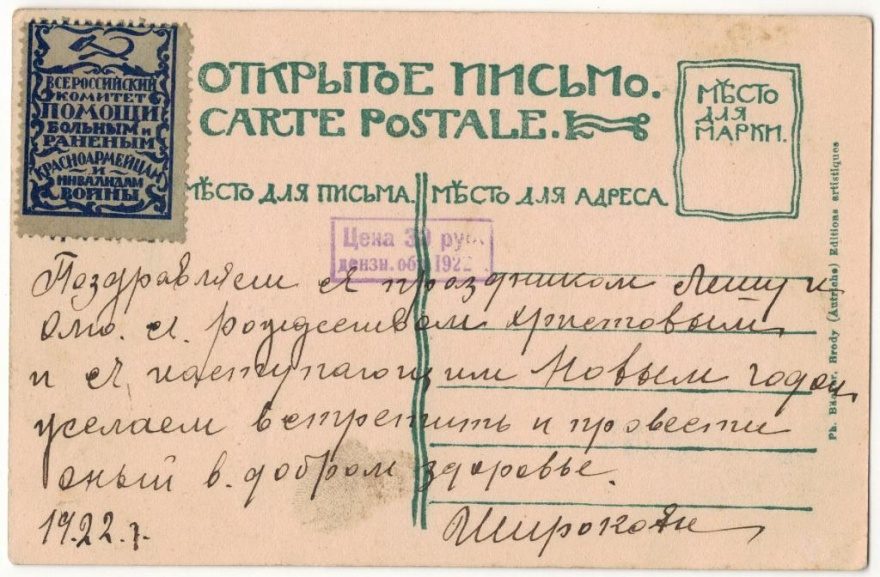 ВСЕРОССИЙСКИЙ
КОМИТЕТ
ПОМОЩИ
БОЛЬНЫМ и
РАНЕНЫМ
КРАСНОАРМЕЙЦАМ
И
ИНВАЛИДАМ
ВОЙНЫ
ОТКРЫТОЕ ПИСЬМО.
CARTE POSTALE.
МѢСТО
ДЛЯ
МАРКИ.
МѢСТО ДЛЯ ПИСЬМА.
МѢСТО ДЛЯ АДРЕСА.
Цена 30 руб.
дензн. обр. 1922
Поздравляем с праздником
с. рождеством христовым
и с наступающим Новым годом
желаем встретить и провести
оный в. добром здоровье.
1922 г.
Ph. Brody (Autriche) Editions artistiques